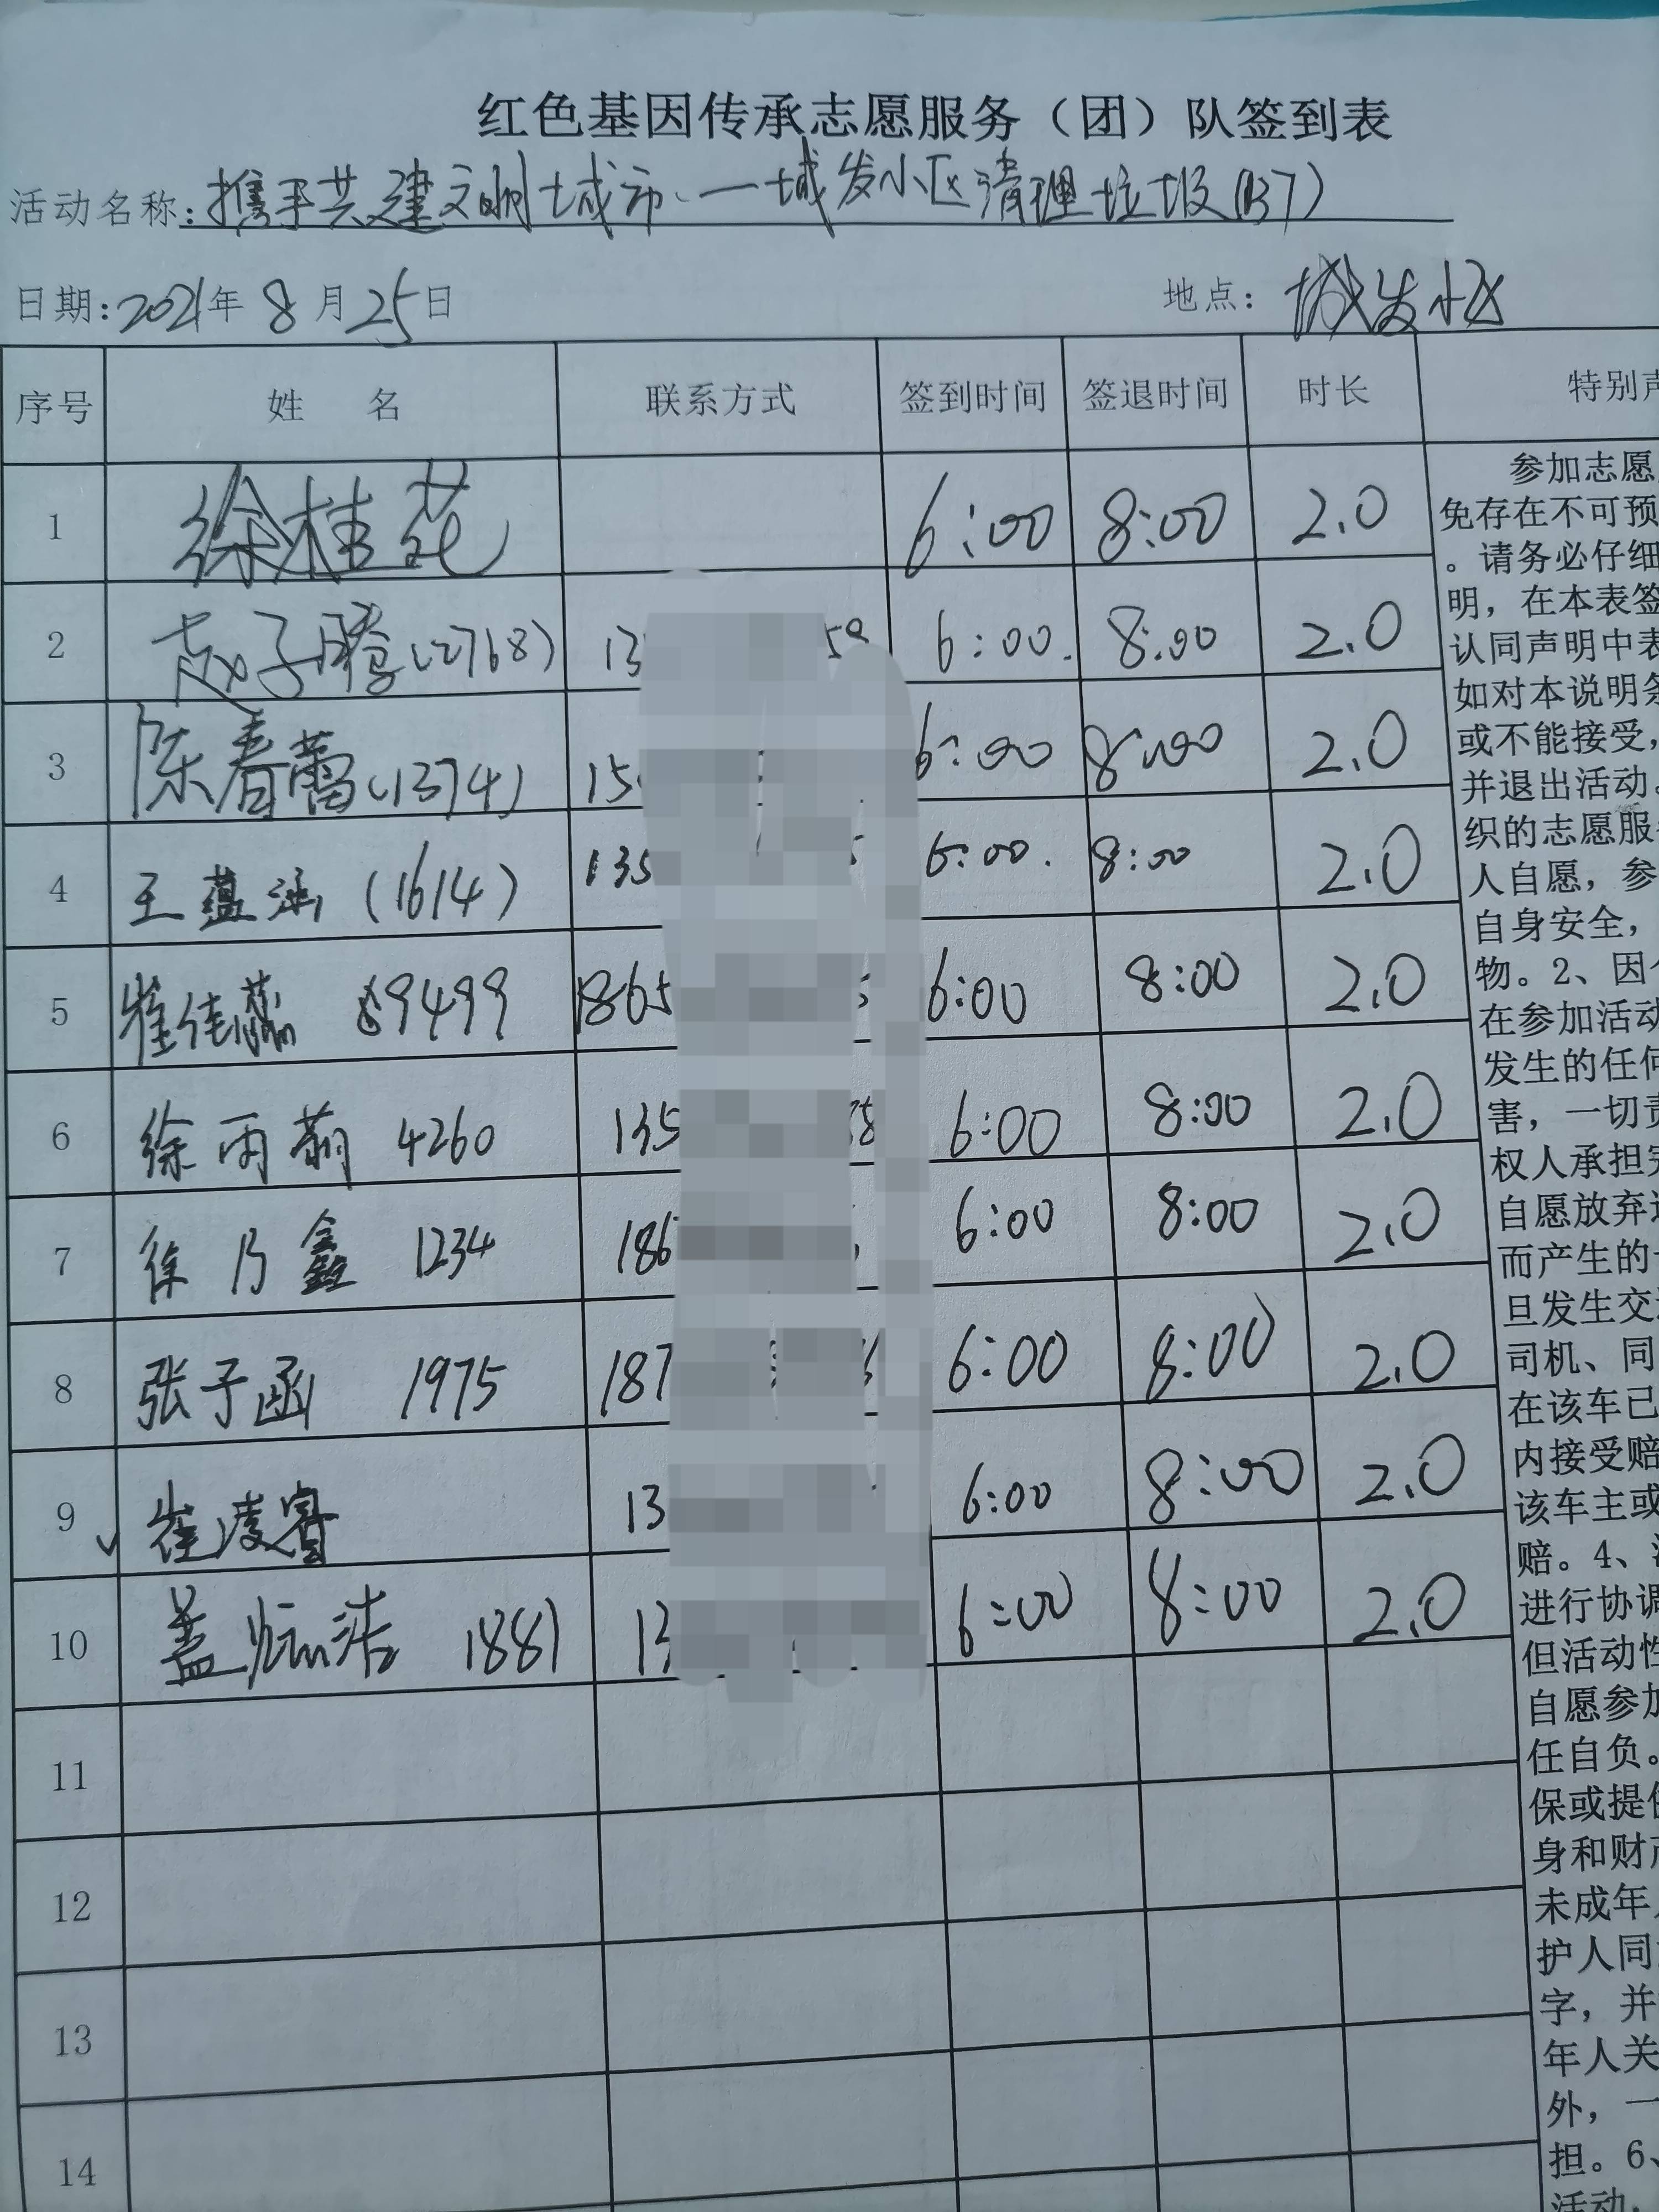 红色基因传承志愿服务（团）队签到表
活动名称：携手共建文明城市、一城发小区清理垃圾(137)
日期：2021年 8 月 25 日 地点：城发小区
序号 姓 名 联系方式 签到时间 签退时间 时长 特别声
1 徐桂花 6:00 8:00 2.0
2 赵子腾(2768) 13 59 6:00. 8:00 2.0
3 陈春蕾(1374) 15 6:00 8:00 2.0
4 王蕴涵(1614) 135 6:00. 8:00 2.0
5 崔佳蕊 69499 1865 6:00 8:00 2.0
6 徐雨萌 4260 135 6:00 8:00 2.0
7 徐乃鑫 1234 186 6:00 8:00 2.0
8 张子函 1975 187 6:00 8:00 2.0
9 崔凌睿 13 6:00 8:00 2.0
10 盖 洁 1881 13 6:00 8:00 2.0
11
12
13
14
参加志愿
免存在不可预
。请务必仔细
明，在本表签
认同声明中表
如对本说明条
或不能接受，
并退出活动。
织的志愿服
人自愿，参
自身安全，
物。2、因个
在参加活动
发生的任何
害，一切责
权人承担完
自愿放弃
而产生的
旦发生交
司机、同
在该车已
内接受赔
该车主或
赔。4、
进行协调
但活动性
自愿参加
任自负。
保或提供
身和财产
未成年
护人同
字，并
年人关
外，一
担。6、
活动，